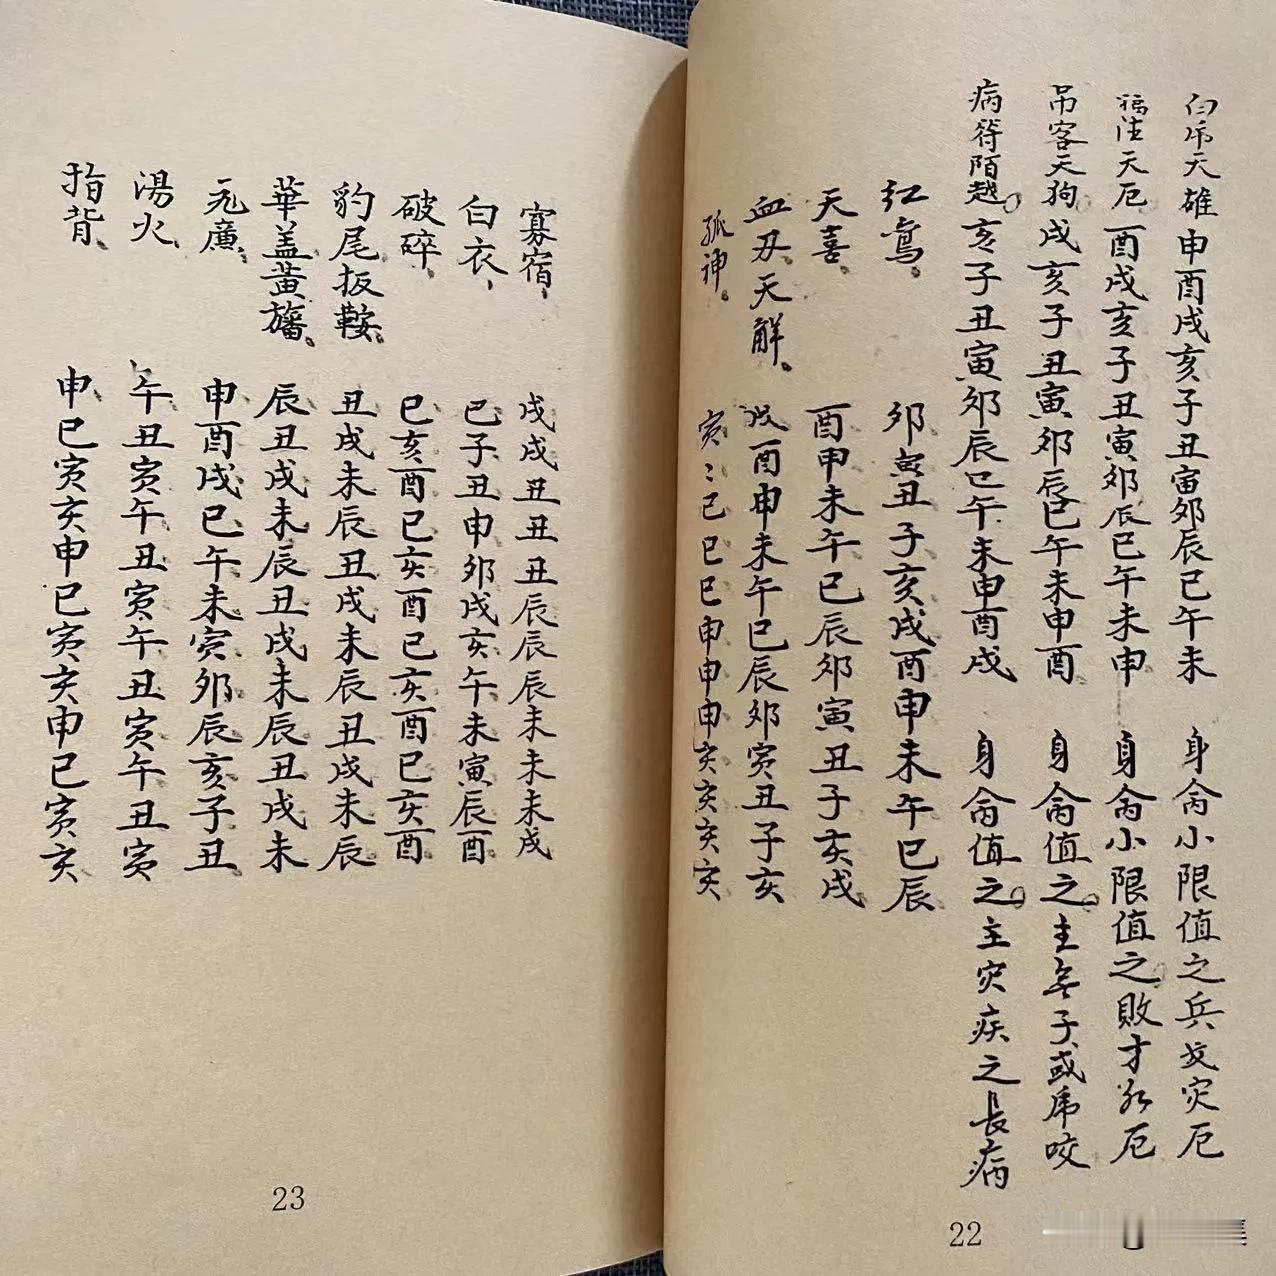 白虎天雄申酉戌亥子丑寅卯辰巳午未 身命小限值之兵戈灾厄
福德天厄酉戌亥子丑寅卯辰巳午未申 身命小限值之敗才厄
吊客天狗戌亥子丑寅卯辰巳午未申酉 身命值之主無子或虎咬
病符陌越亥子丑寅卯辰巳午未申酉戌 身命值之主灾疾之長病
红鸾、卯寅丑子亥戌酉申未午巳辰
天喜、酉申未午巳辰卯寅丑子亥戌
血刃天解、戌酉申未午巳辰卯寅丑子亥
孤神、寅〻巳巳巳申申申亥亥亥亥
22
寡宿、戌戌丑丑丑辰辰辰未未未戌
白衣、巳子丑申卯戌亥午未寅辰酉
破碎、巳亥酉巳亥酉巳亥酉巳亥酉
豹尾扳鞍、丑戌未辰丑戌未辰丑戌未辰
華盖黄旛、辰丑戌未辰丑戌未辰丑戌未
元廉、申酉戌巳午未寅卯辰亥子丑
湯火、午丑寅午丑寅午丑寅午丑寅
指背、申巳寅亥申巳寅亥申巳寅亥
23